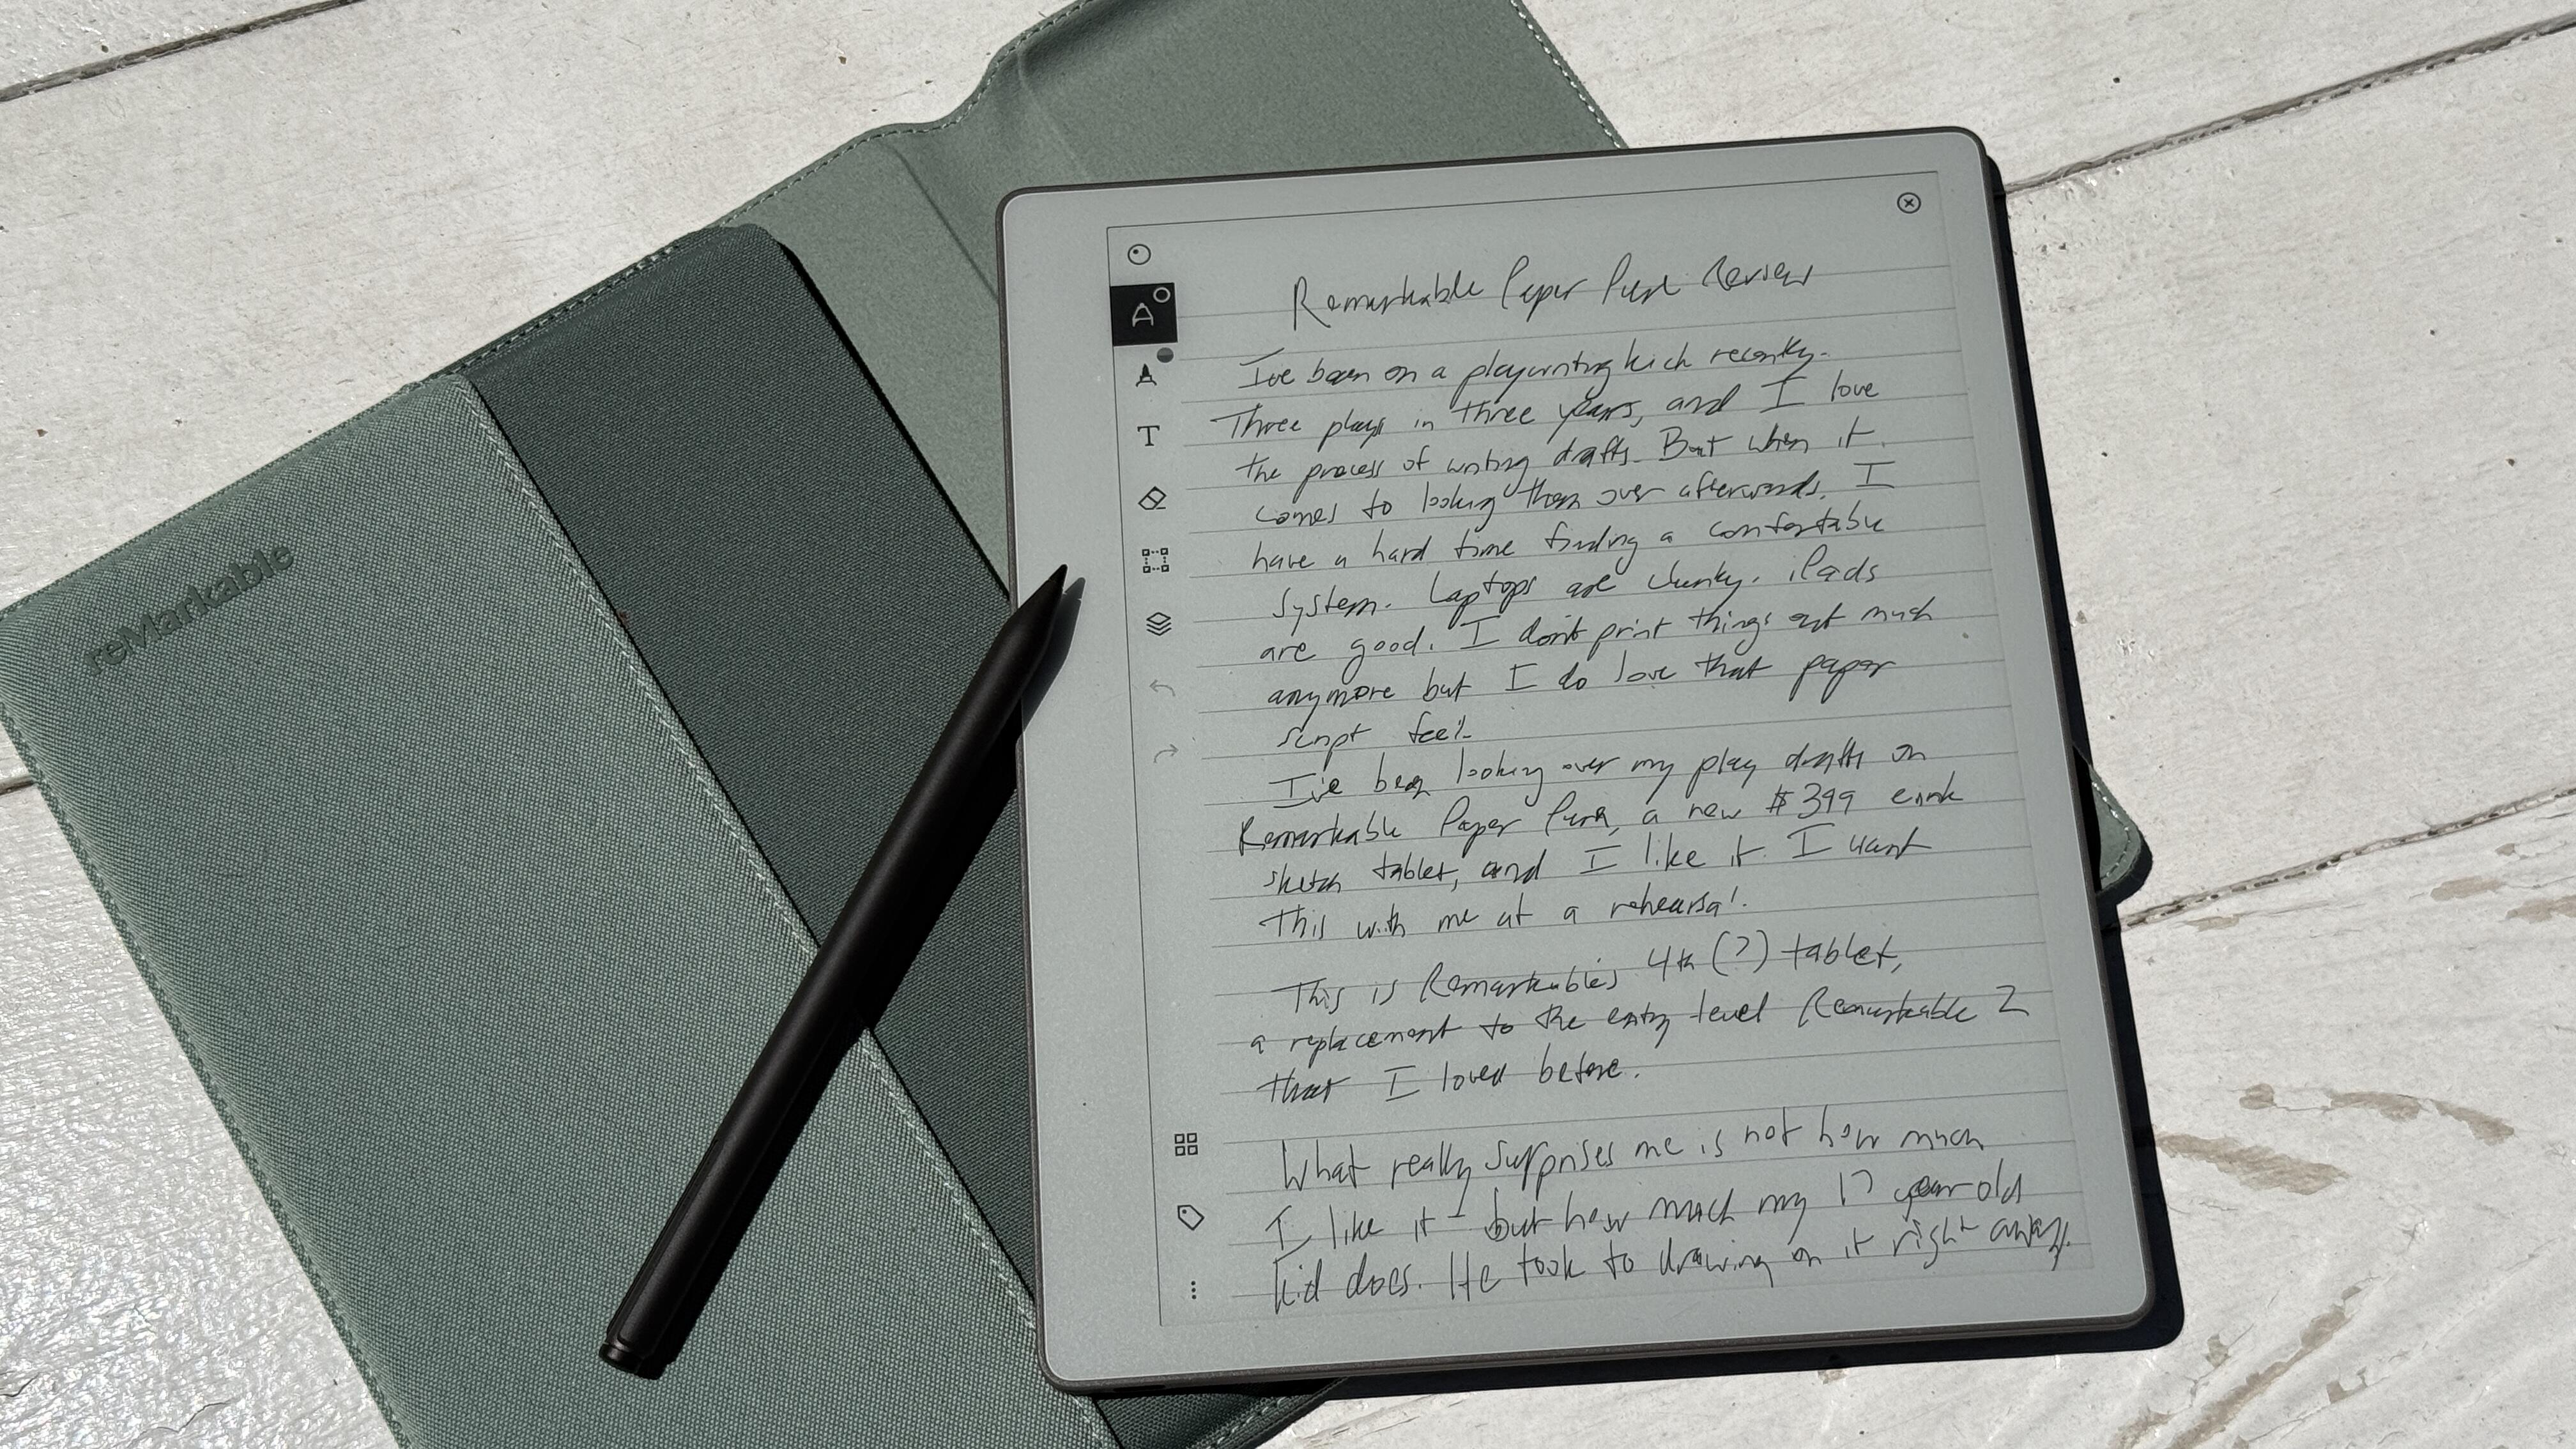 reMarkable
Remarkable Paper Pure Review
I've been on a playwriting kick recently.
Three plays in three years, and I love
the process of writing drafts. But when it
comes to looking them over afterwards, I
have a hard time finding a comfortable
system. Laptops are clunky. iPads
are good. I don't print things out much
anymore but I do love that paper
script feel.
I've been looking over my play drafts on
Remarkable Paper Pure, a new $399 eink
sketch tablet, and I like it. I want
this with me at a rehearsal.
This is Remarkable's 4th (?) tablet,
a replacement to the entry level Remarkable 2
that I loved before.
What really surprises me is not how much
I like it - but how much my 17 year old
kid does. He took to drawing on it right away.
T